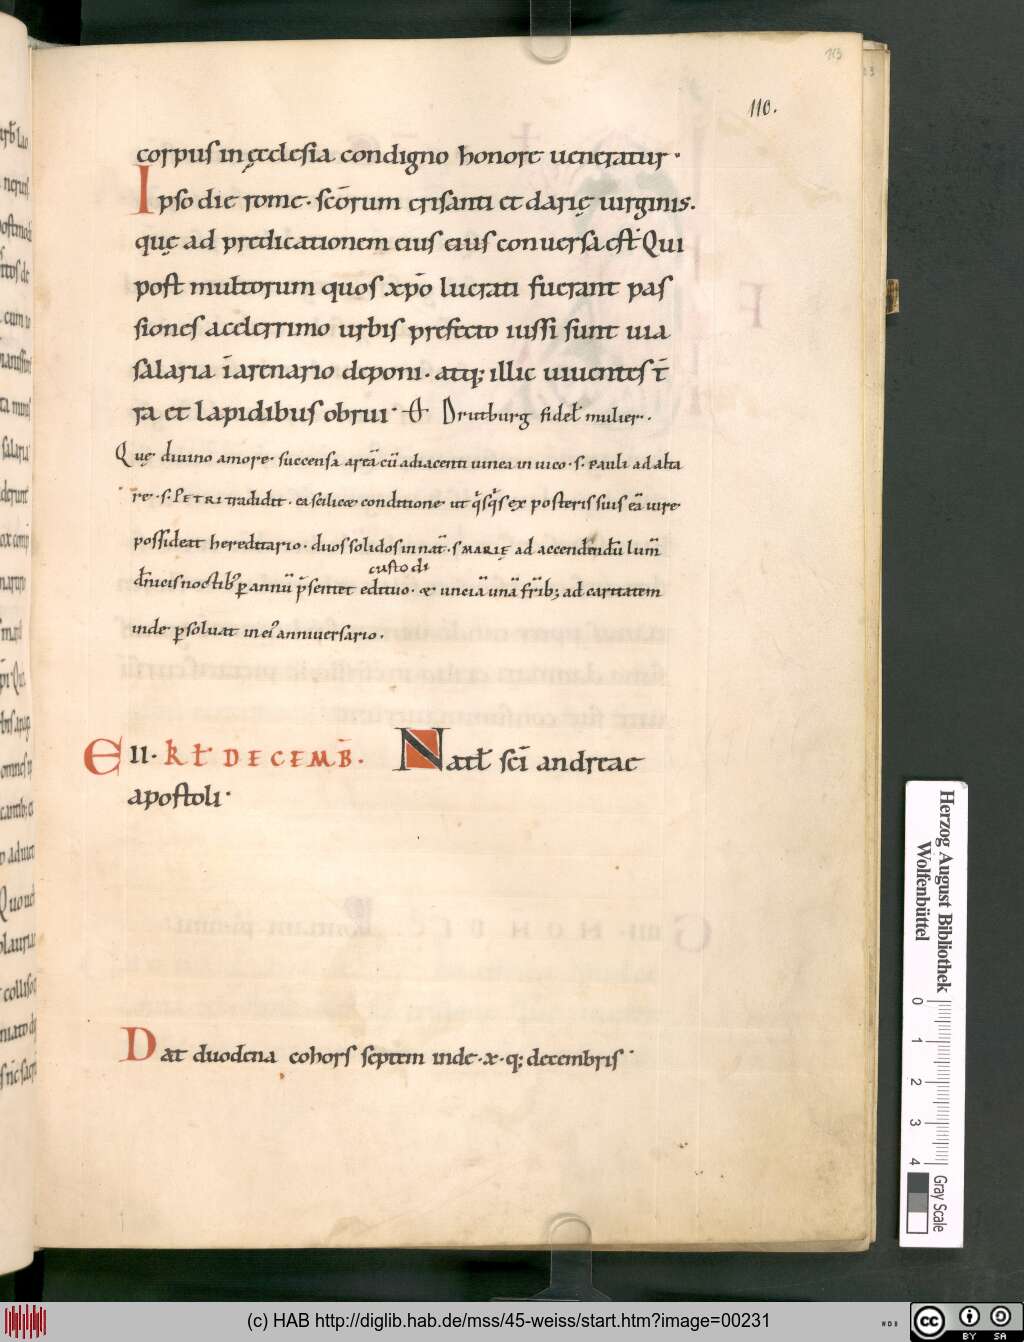 113
110.
corpus in ęcclesia condigno honore ueneratur·
Ipso die rome· scōrum crisanti et darię uirginis.
quę ad predicationem eius eius conuersa est· Qui
post multorum quos xp̄o lucrati fuerant pas
siones acelerrimo urbis prefecto iussi sunt uia
salaria ī arenario deponi· atq; illic uiuentes t̄
ra et lapidibus obrui· Drutburg fidel̄ mulier·
Quę diuino amore· succensa areā cū adiacenti uinea in uico· s· pauli ad alta
re· s· PETRI tradidit· ea scilicet conditione ut q̄sq̄s ex posteris suis eā iure
possideat hereditario· duos solidos in nat̄· s MARIĘ ad accendendū lum̄
custodi
d̄nicis noctibꝰ ꝑ annū p̄sentet edituo· & unciā unā fr̄ib; ad caritatem
inde ꝑsoluat in eiꝰ anniuersario·
E II· KL DECEMB̄· Natl̄ sc̄i andreae
apostoli·
Dat duodena cohors septem inde· x· q; decembris·
Herzog August Bibliothek
Wolfenbüttel
0 1 2 3 4
Gray Scale
(c) HAB http://diglib.hab.de/mss/45-weiss/start.htm?image=00231
cc BY SA